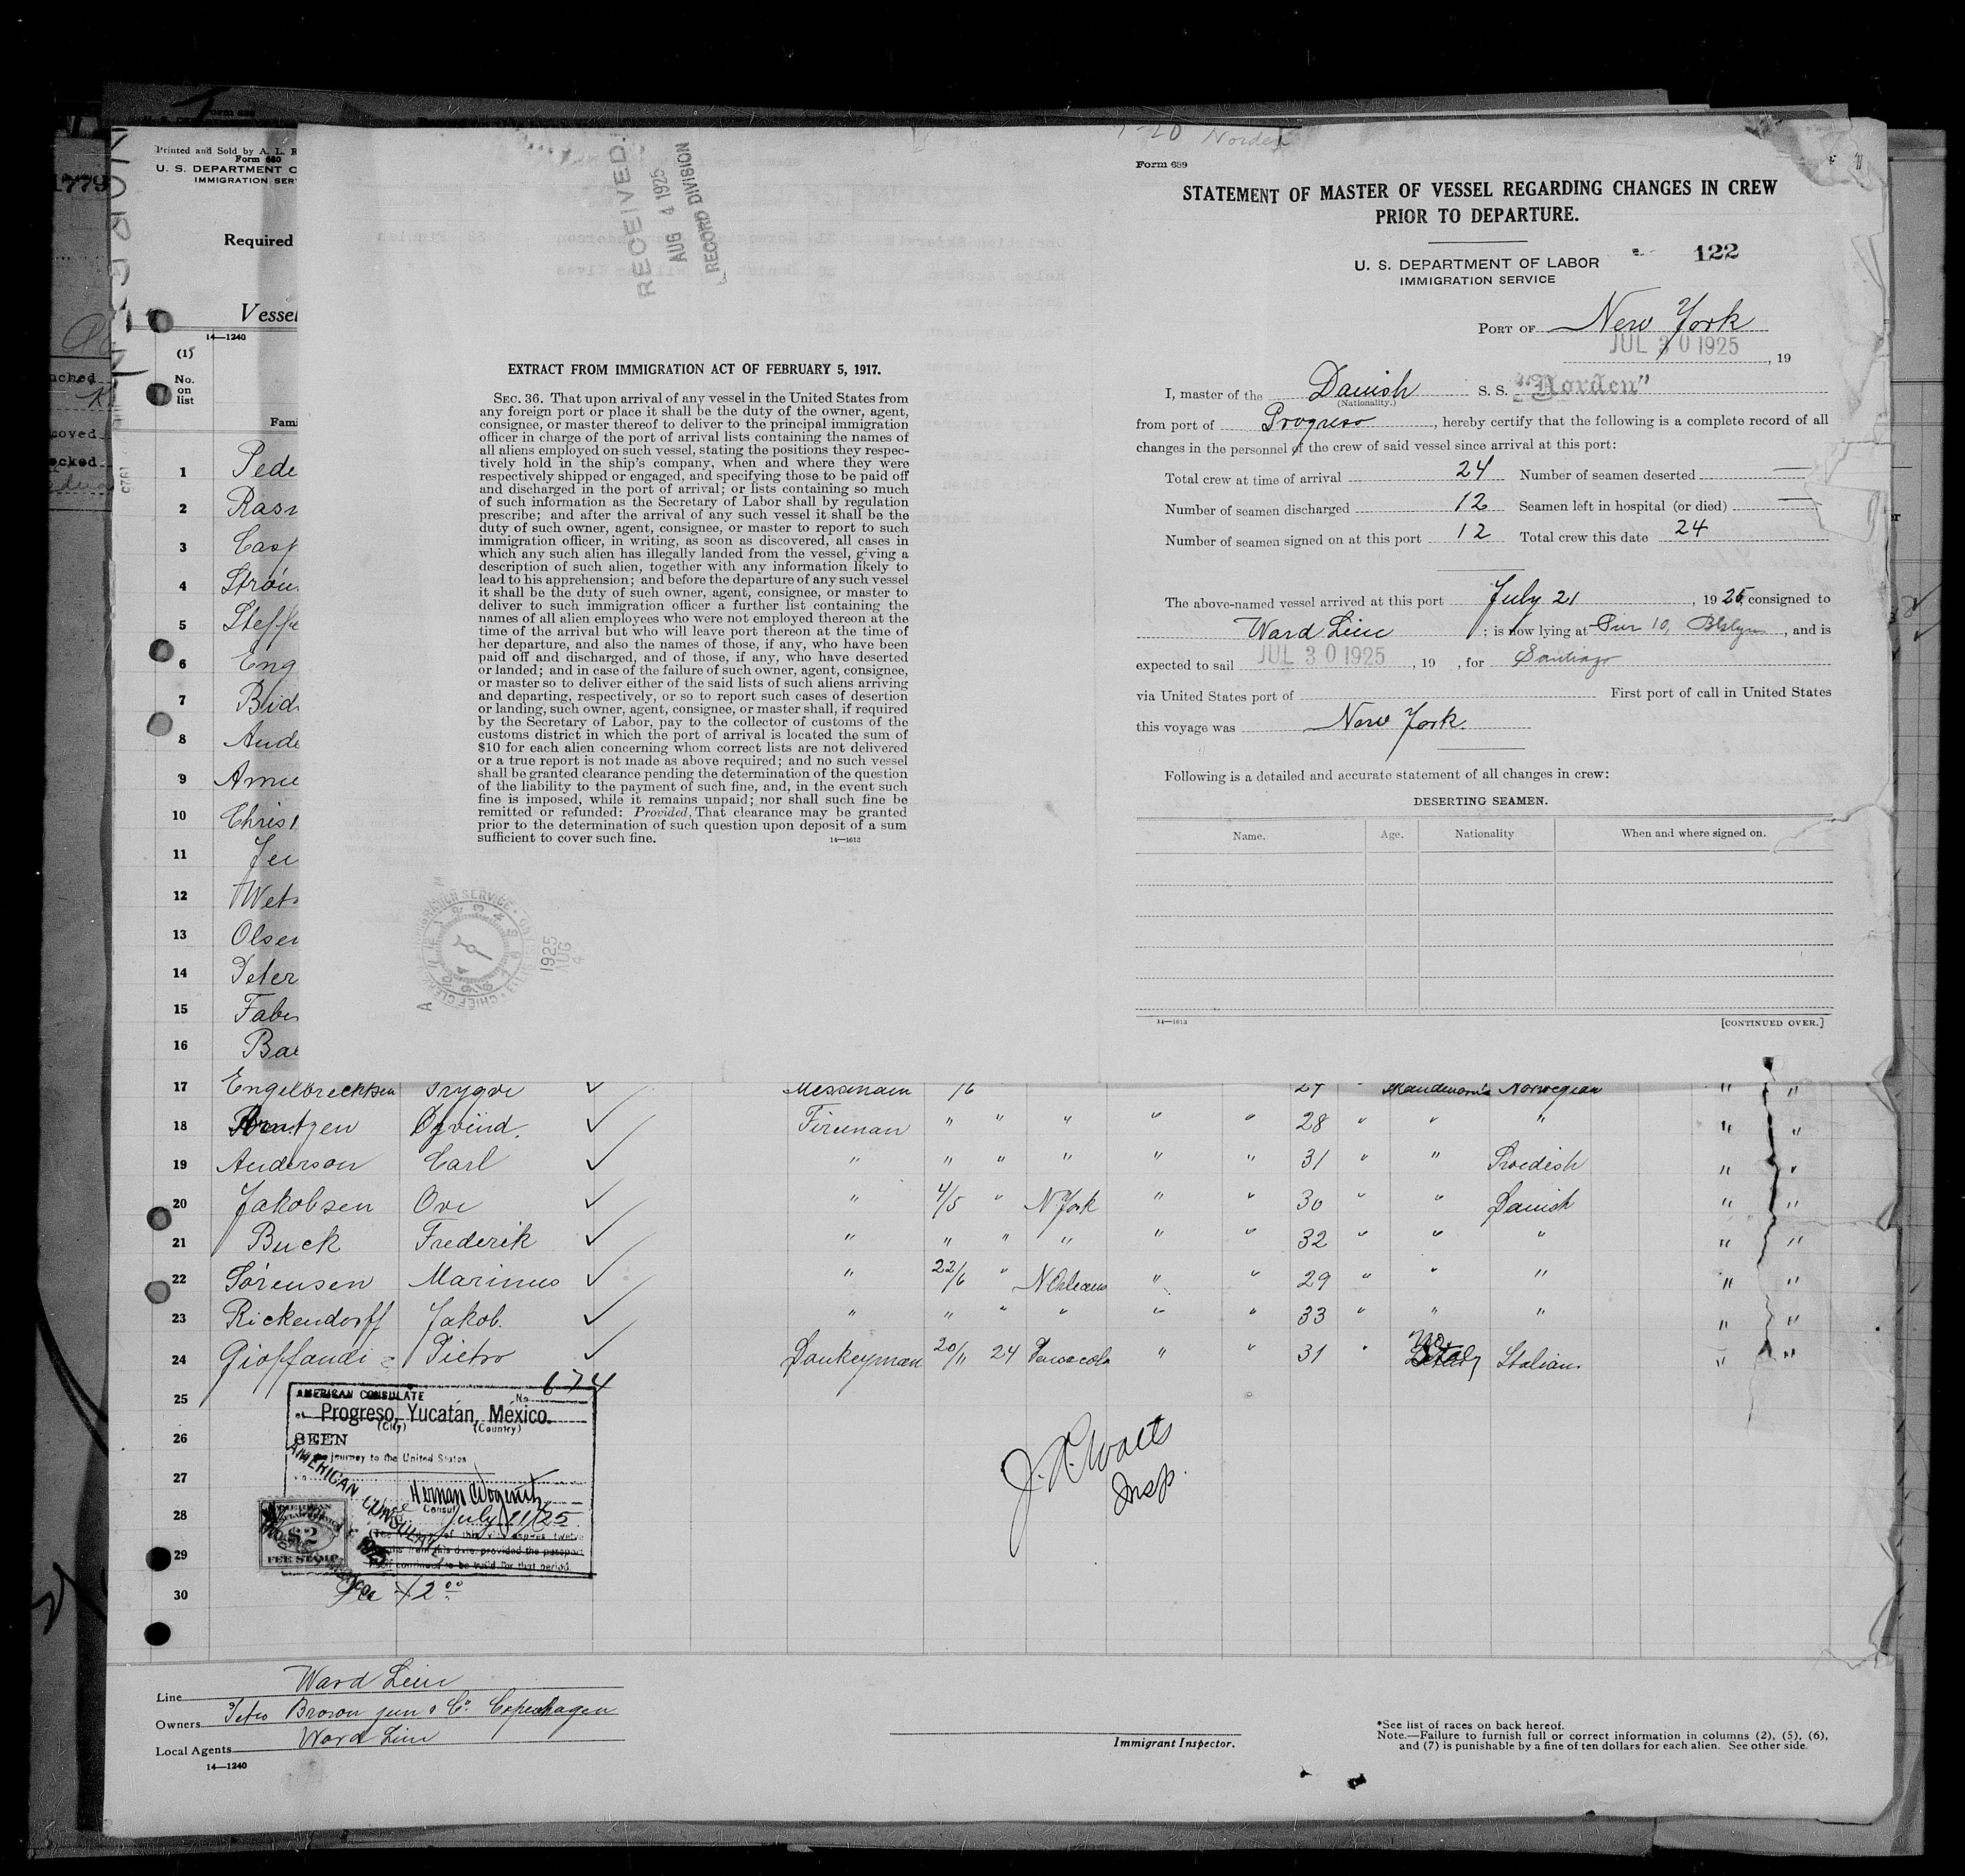 Printed and Sold by A. L. R
Form 680
U. S. DEPARTMENT O
IMMIGRATION SER
Required
Vessel
14—1240
(1)
No.
on
list
Fami
1 Pede
2 Rasm
3 Casp
4 Strou
5 Steffe
6 Eng
7 Bid
8 Ande
9 Arne
10 Christ
11 Jen
12 Wet
13 Olsen
14 Peter
15 Fabe
16 Bae
RECEIVED
AUG 4 1925
RECORD DIVISION
EXTRACT FROM IMMIGRATION ACT OF FEBRUARY 5, 1917.
SEC. 36. That upon arrival of any vessel in the United States from
any foreign port or place it shall be the duty of the owner, agent,
consignee, or master thereof to deliver to the principal immigration
officer in charge of the port of arrival lists containing the names of
all aliens employed on such vessel, stating the positions they respec-
tively hold in the ship's company, when and where they were
respectively shipped or engaged, and specifying those to be paid off
and discharged in the port of arrival; or lists containing so much
of such information as the Secretary of Labor shall by regulation
prescribe; and after the arrival of any such vessel it shall be the
duty of such owner, agent, consignee, or master to report to such
immigration officer, in writing, as soon as discovered, all cases in
which any such alien has illegally landed from the vessel, giving a
description of such alien, together with any information likely to
lead to his apprehension; and before the departure of any such vessel
it shall be the duty of such owner, agent, consignee, or master to
deliver to such immigration officer a further list containing the
names of all alien employees who were not employed thereon at the
time of the arrival but who will leave port thereon at the time of
her departure, and also the names of those, if any, who have been
paid off and discharged, and of those, if any, who have deserted
or landed; and in case of the failure of such owner, agent, consignee,
or master so to deliver either of the said lists of such aliens arriving
and departing, respectively, or so to report such cases of desertion
or landing, such owner, agent, consignee, or master shall, if required
by the Secretary of Labor, pay to the collector of customs of the
customs district in which the port of arrival is located the sum of
$10 for each alien concerning whom correct lists are not delivered
or a true report is not made as above required; and no such vessel
shall be granted clearance pending the determination of the question
of the liability to the payment of such fine, and, in the event such
fine is imposed, while it remains unpaid; nor shall such fine be
remitted or refunded: Provided, That clearance may be granted
prior to the determination of such question upon deposit of a sum
sufficient to cover such fine.
14—1613
1925
AUG
4
Norden
Form 689
STATEMENT OF MASTER OF VESSEL REGARDING CHANGES IN CREW
PRIOR TO DEPARTURE.
122
U. S. DEPARTMENT OF LABOR
IMMIGRATION SERVICE
PORT OF New York
JUL 30 1925, 19
I, master of the Danish S. S. "Norden"
(Nationality.)
from port of Progreso, hereby certify that the following is a complete record of all
changes in the personnel of the crew of said vessel since arrival at this port:
Total crew at time of arrival 24 Number of seamen deserted —
Number of seamen discharged 12 Seamen left in hospital (or died) —
Number of seamen signed on at this port 12 Total crew this date 24
The above-named vessel arrived at this port July 21, 1925, consigned to
Ward Line; is now lying at Pier 10, Bklyn, and is
expected to sail JUL 30 1925, 19 , for Santiago
via United States port of First port of call in United States
this voyage was New York.
Following is a detailed and accurate statement of all changes in crew:
DESERTING SEAMEN.
Name. Age. Nationality When and where signed on.
14—1613 [CONTINUED OVER.]
17 Engelbrechtsen Trygve ✓ Messman 16 27 " Norwegian " "
18 Arntzen Øyvind. ✓ Fireman " " " " " 28 " " " " "
19 Anderson Carl ✓ " " " " " " 31 " " Swedish " "
20 Jakobsen Ove ✓ " 4/5 " N York " " 30 " " Danish " "
21 Buck Frederik ✓ " " " " " " 32 " " " " "
22 Sørensen Marinus ✓ " 22/6 " N Orleans " " 29 " " " " "
23 Rickendorff Jakob. ✓ " " " " " " 33 " " " " "
24 Gioffandi Pietro ✓ Donkeyman 20/11 24 Pensacola " " 31 " Italian. " "
25
26
27
28
29
30
AMERICAN CONSULATE
No. 674
at Progreso, Yucatán, México.
(City) (Country)
SEEN
journey to the United States
Consul
July 11/25
AMERICAN CONSULATE
$2
FEE STAMP
Fee $2.00
Insp.
Line Ward Line
Owners Peter Brown jun & Co. Copenhagen
Local Agents Ward Line
14—1240
Immigrant Inspector.
*See list of races on back hereof.
Note.—Failure to furnish full or correct information in columns (2), (5), (6),
and (7) is punishable by a fine of ten dollars for each alien. See other side.